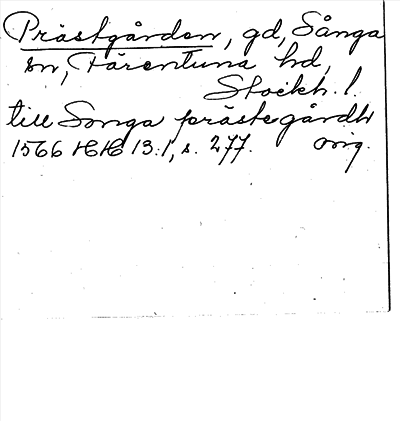 Prästgården, gd, Sånga
sn, Färentuna hd,
Stockh. l.
till Songa prästegårdh
1566 HH 13:1, s. 277. orig.